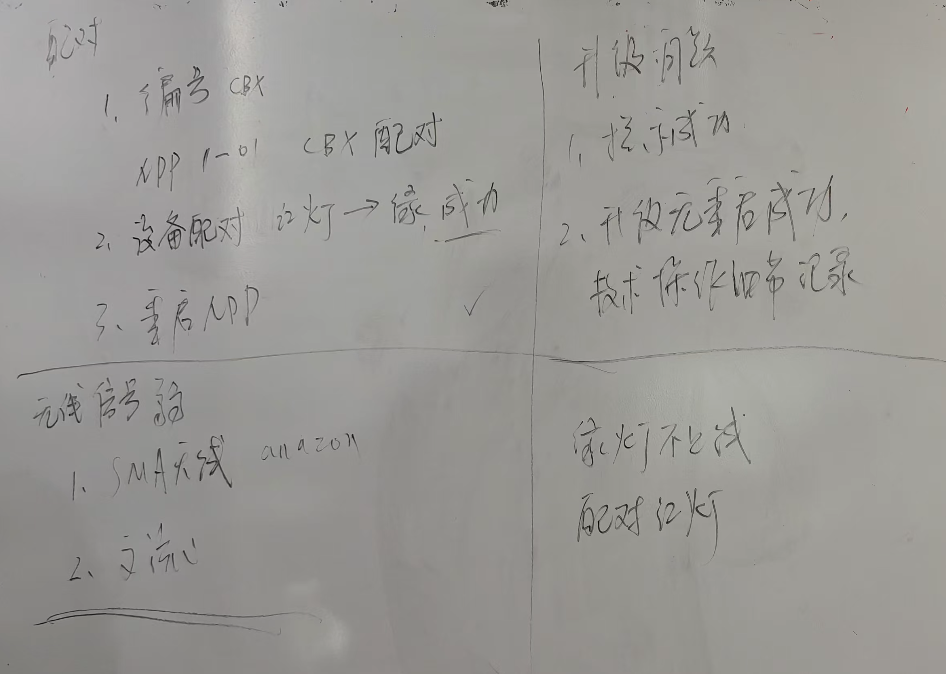 配对
1、编号 CBX
NPP 1-01 CBX 配对
2、设备配对 红灯→绿,成功
3、重启NPP ✓
升级问题
1、提示成功
2、升级完重启成功,
技术操作日常记录
无线信号弱
1、SMA天线 amazon
2、交流心
绿灯不上线
配对红灯